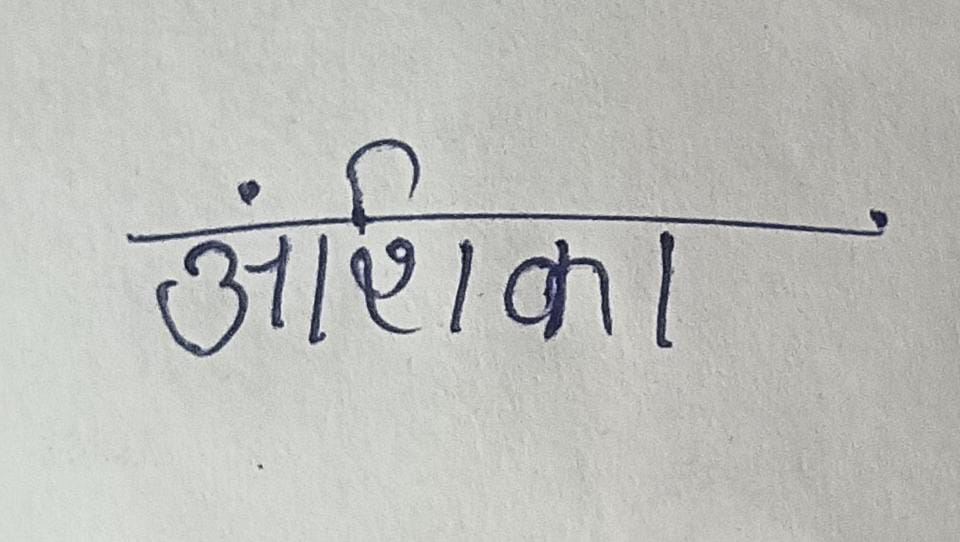 अंशिका